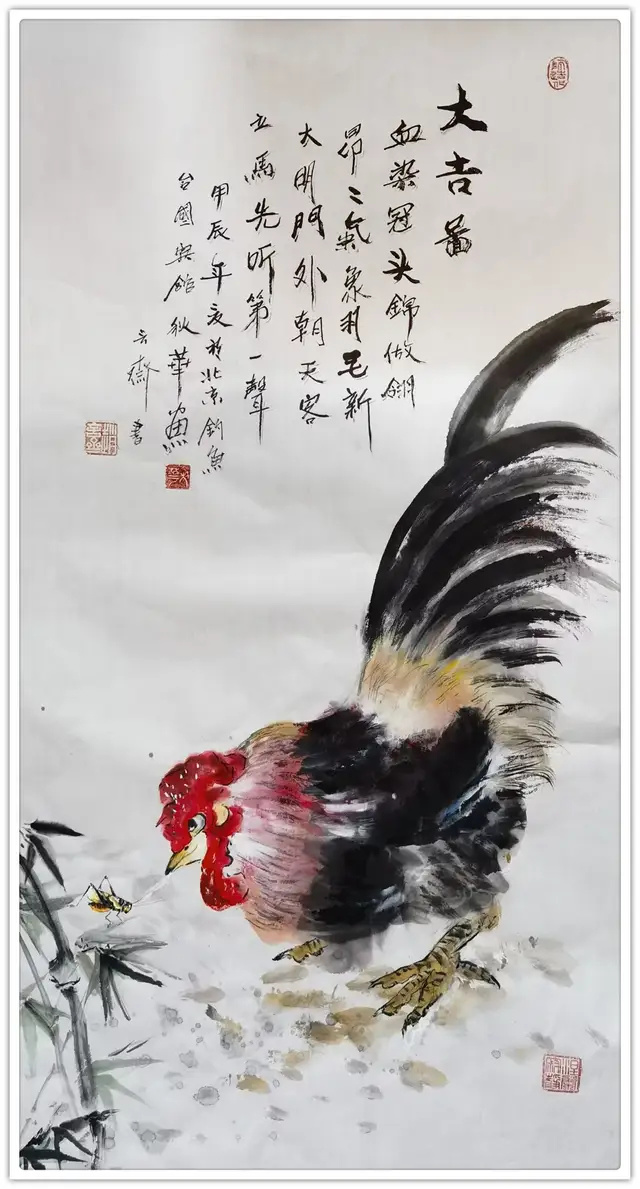 大吉啚
血染冠头錦做翎
昂〻氣象羽毛新
大明門外朝天客
立馬先听第一聲
甲辰年夏於北京釣魚
台國宾館狄華畫
云齋書